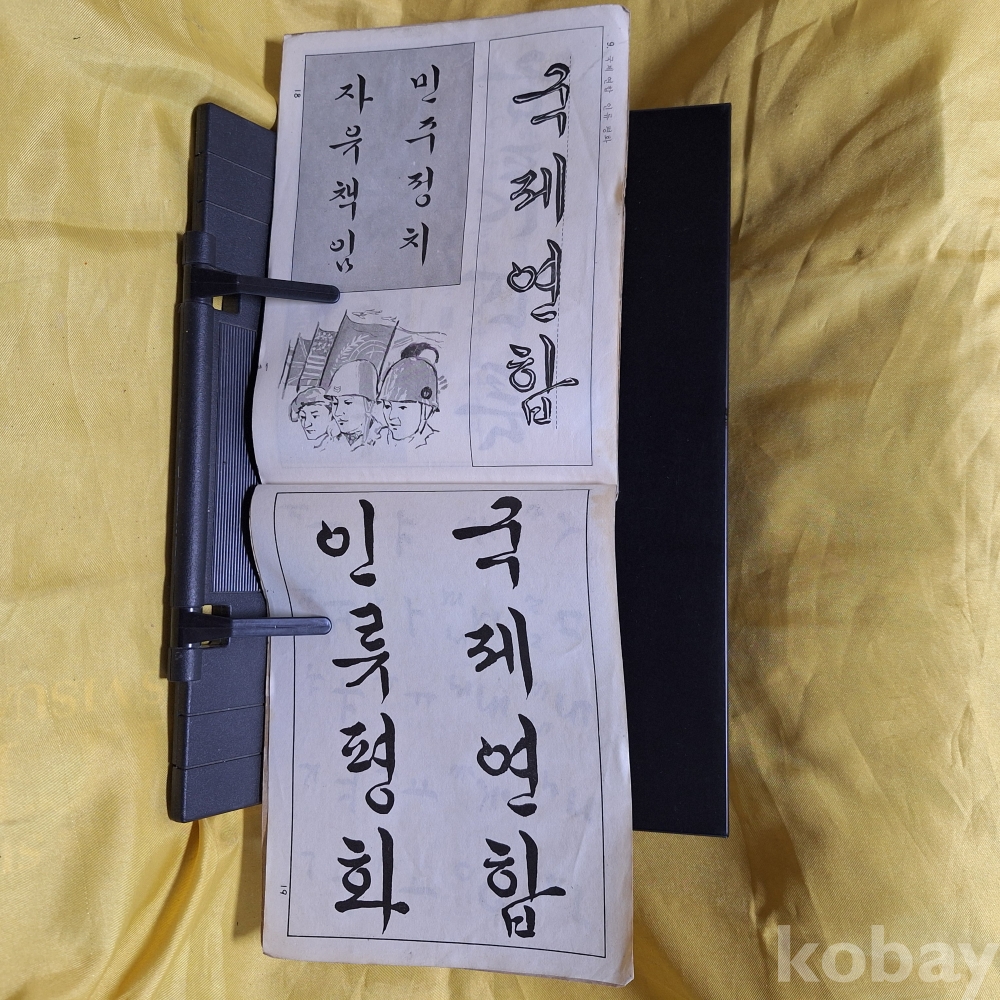 9. 국제 연합 인류 평화
국제연합
민주정치
자유책임
18
국제연합
인류평화
19
kobay